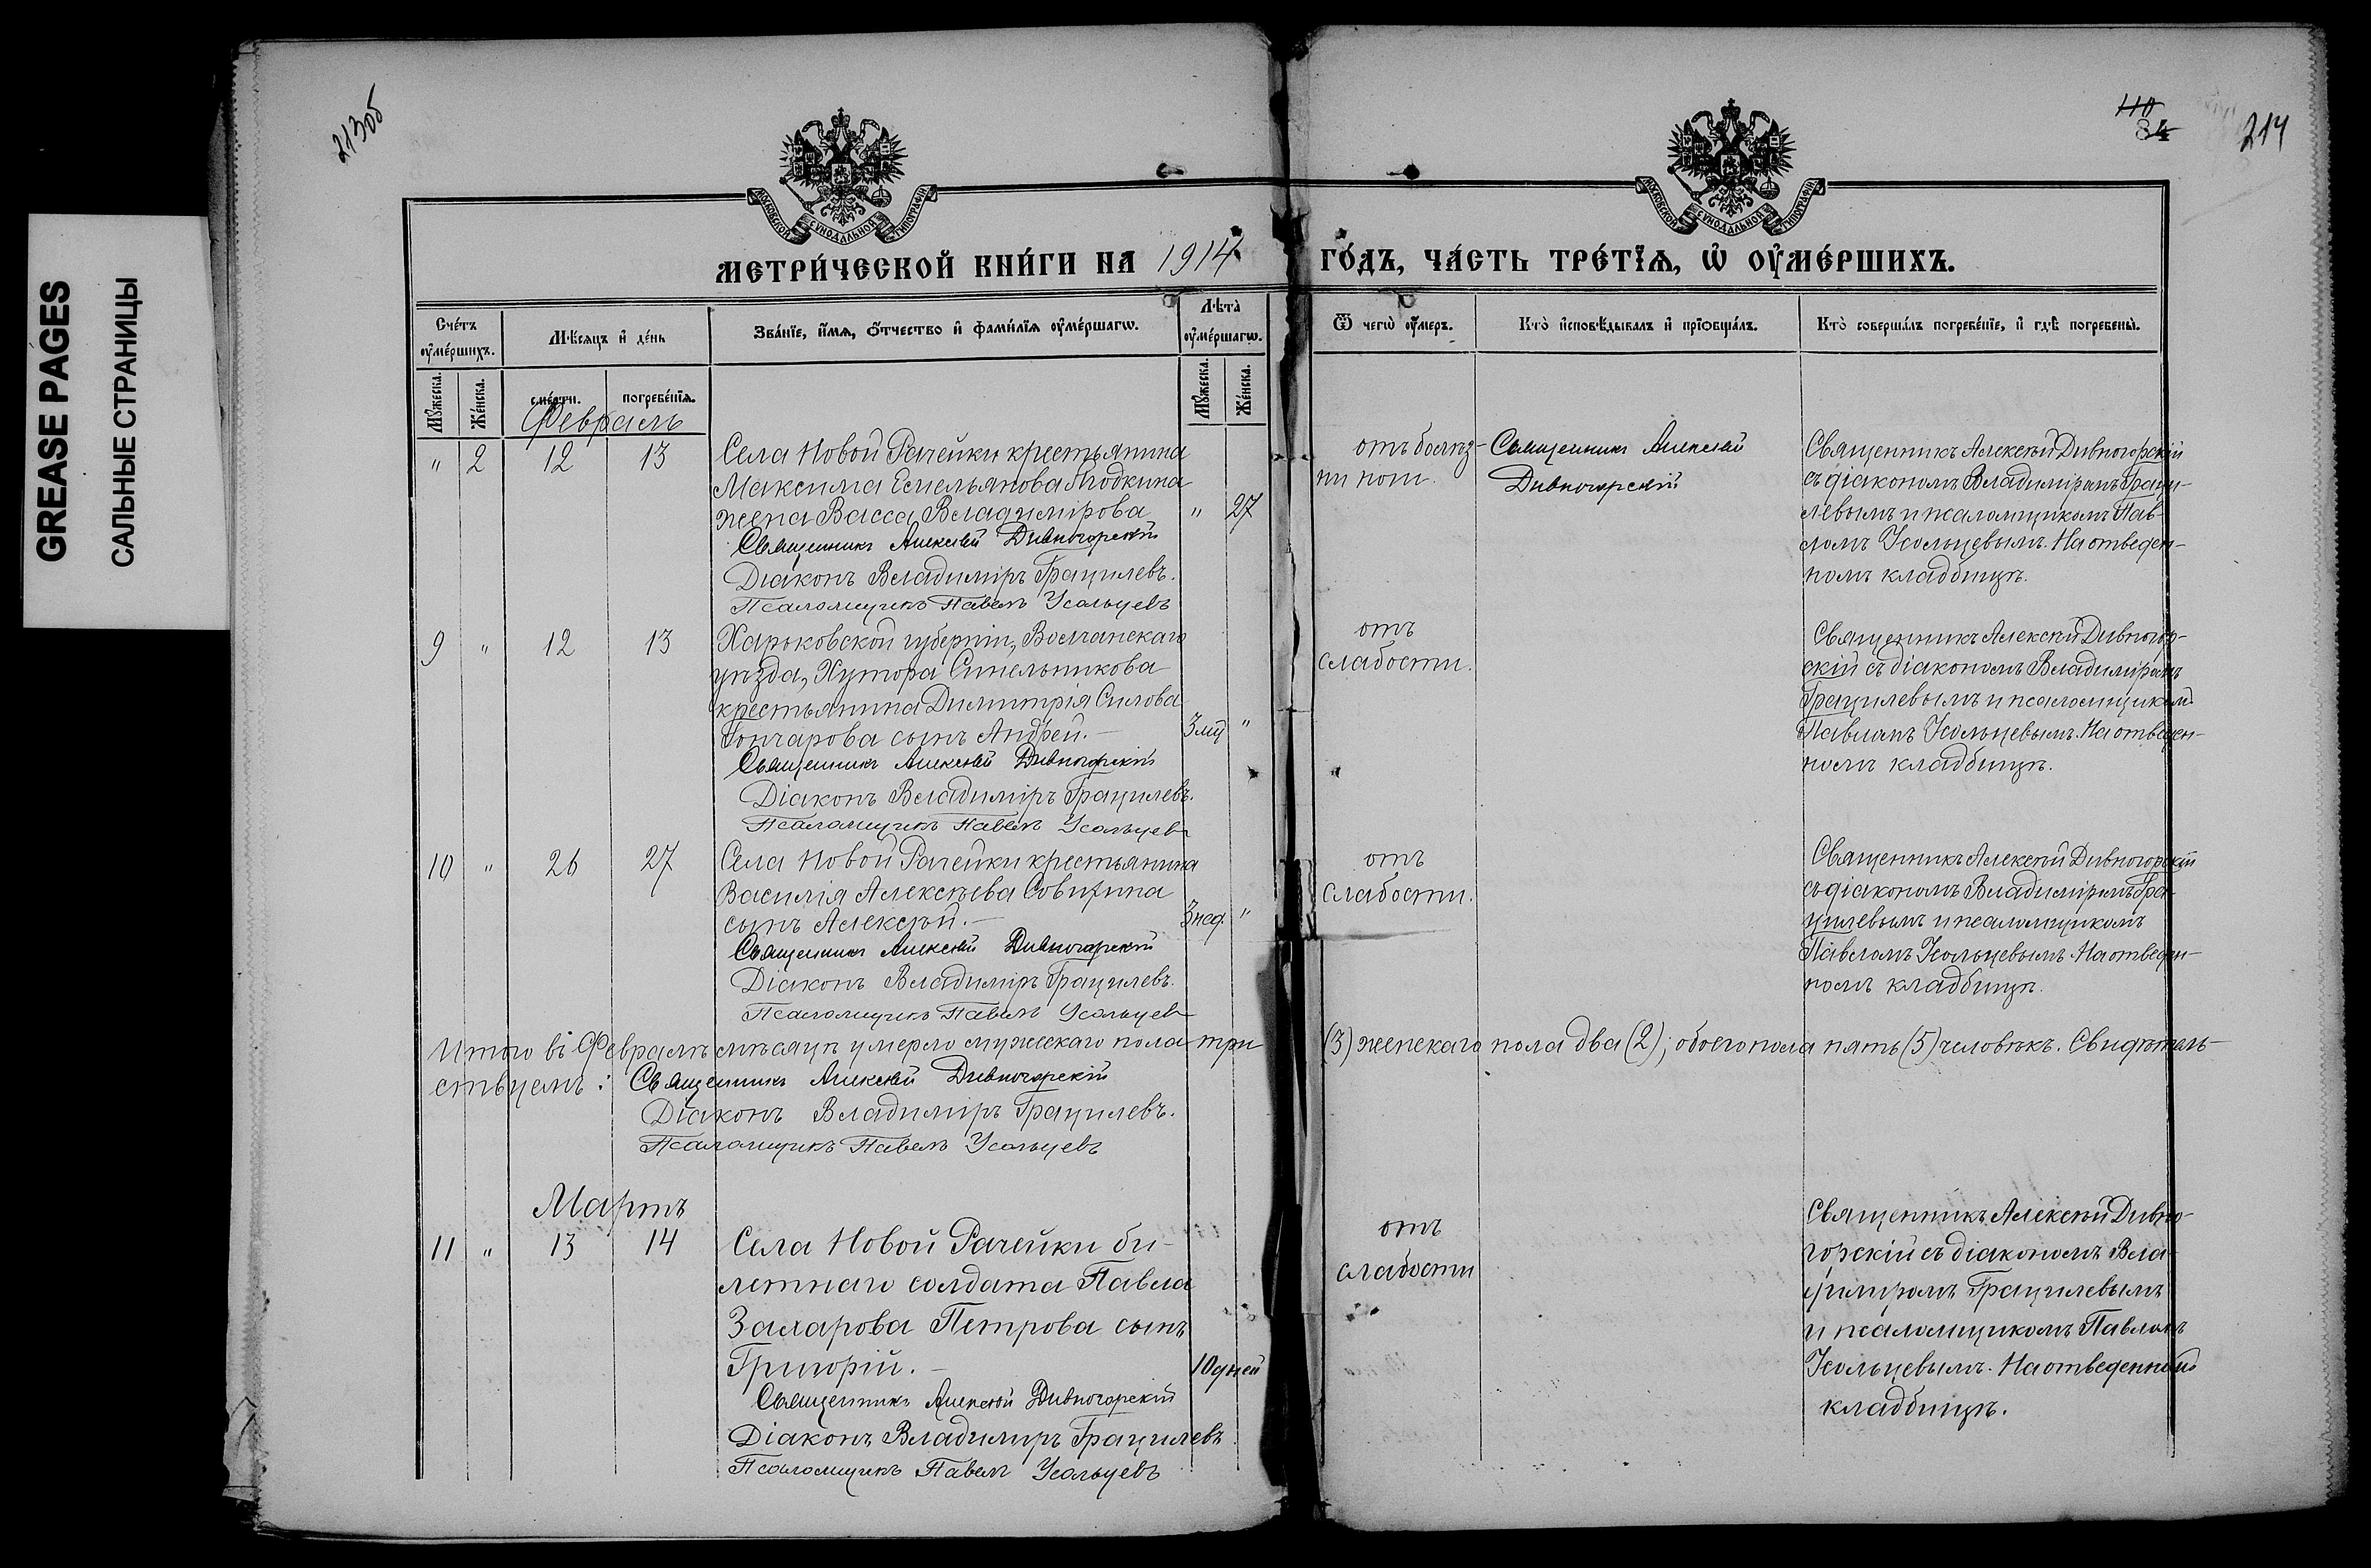 GREASE PAGES
САЛЬНЫЕ СТРАНИЦЫ
213об
110
84
214
МОСКОВСКОЙ СѴНОДАЛЬНОЙ ТИПОГРАФІИ
МОСКОВСКОЙ СѴНОДАЛЬНОЙ ТИПОГРАФІИ
МЕТРИ́ЧЕСКОЙ КНИ́ГИ НА 1914 ГО́ДЪ, ЧА́СТЬ ТРЕ́ТЇѦ, Ѡ҆ ОУ҆МЕ́РШИХЪ.
Сче́тъ оу҆ме́ршихъ.
Мѣ́сяцъ и҆ де́нь
Зва́нїе, и҆́мѧ, ѻ҆́тчество и҆ фами́лїѧ оу҆ме́ршагѡ.
Лѣ́та оу҆ме́ршагѡ.
Ѿ чегѡ̀ оу҆́меръ.
Кто̀ и҆сповѣ́дывалъ и҆ прїѡбща́лъ.
Кто̀ соверша́лъ погребе́нїе, и҆ гдѣ̀ погребены̀.
Мꙋ́жеска.
Же́нска.
сме́рти.
погребе́нїѧ.
Мꙋ́жеска.
Же́нска.
Февраль
" 2 12 13
Села Новой Рачейки крестьянина
Максима Емельянова Ягодкина
жена Васса Владимірова
" 27
Священникъ Алексѣй Дивногорскій
Діаконъ Владиміръ Грацилевъ.
Псаломщикъ Павелъ Усольцевъ
отъ болѣз-
ни ноги.
Священникъ Алексѣй
Дивногорскій
Священникъ Алексѣй Дивногорскій
съ діакономъ Владиміромъ Граци-
левымъ и псаломщикомъ Пав-
ломъ Усольцевымъ. На отведен-
номъ кладбищѣ.
9 " 12 13
Харьковской губерніи, Волчанскаго
уѣзда, Хутора Синельникова
крестьянина Димитрія Силова
Гончарова сынъ Андрей.—
3 мц "
Священникъ Алексѣй Дивногорскій
Діаконъ Владиміръ Грацилевъ.
Псаломщикъ Павелъ Усольцевъ
отъ
слабости.
Священникъ Алексѣй Дивногор-
скій съ діакономъ Владиміромъ
Грацилевымъ и псаломщикомъ
Павломъ Усольцевымъ. На отведен-
номъ кладбищѣ.
10 " 26 27
Села Новой Рачейки крестьянина
Василія Алексѣева
сынъ Алексѣй.—
3 нед. "
Священникъ Алексѣй Дивногорскій
Діаконъ Владиміръ Грацилевъ.
Псаломщикъ Павелъ Усольцевъ
отъ
слабости.
Священникъ Алексѣй Дивногорскій
съ діакономъ Владиміромъ Гра-
цилевымъ и псаломщикомъ
Павломъ Усольцевымъ. На отведен-
номъ кладбищѣ.
Итого въ Февралѣ мѣсяцѣ умерло мужескаго пола три (3) женскаго пола два (2); обоего пола пять (5) человѣкъ. Свидѣтель-
ствуемъ: Священникъ Алексѣй Дивногорскій
Діаконъ Владиміръ Грацилевъ.
Псаломщикъ Павелъ Усольцевъ
Мартъ
11 " 13 14
Села Новой Рачейки би-
летнаго солдата Павла
Захарова Петрова сынъ
Григорій.—
10 дней
Священникъ Алексѣй Дивногорскій
Діаконъ Владиміръ Грацилевъ
Псаломщикъ Павелъ Усольцевъ
отъ
слабости
Священникъ Алексѣй Дивно-
горскій съ діакономъ Вла-
диміромъ Грацилевымъ
и псаломщикомъ Павломъ
Усольцевымъ. На отведенномъ
кладбищѣ.